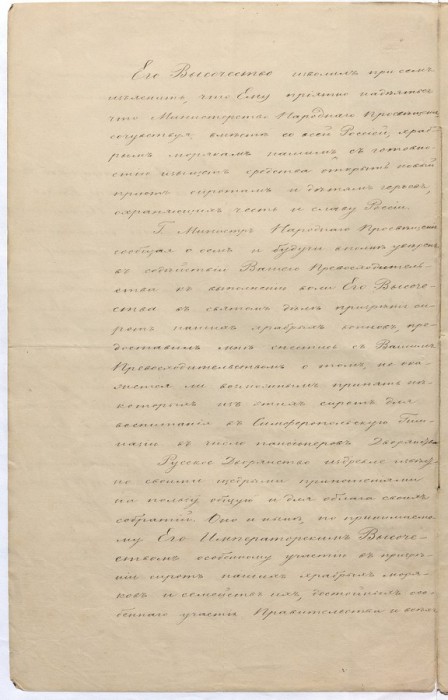 Его Высочество изволилъ при семъ
изъяснить, что Ему пріятно надѣяться
что Министерство Народнаго Просвѣщенія
сочувствуя, вмѣстѣ со всей Россіей, храб-
рымъ морякамъ нашимъ, съ готовно-
стію изыщетъ средства открыть новый
пріютъ сиротамъ и дѣтямъ героевъ,
охраняющихъ честь и славу Россіи.
Г. Министръ Народнаго Просвѣщенія
сообщая о семъ и будучи вполнѣ увѣренъ
въ содѣйствіи Вашего Превосходитель-
ства къ выполненію воли Его Высоче-
ства въ святомъ дѣлѣ призрѣнія си-
ротъ нашихъ храбрыхъ воиновъ, пре-
доставилъ мнѣ снестись съ Вашимъ
Превосходительствомъ о томъ, не ока-
жется ли возможнымъ принять нѣ-
которыхъ изъ этихъ сиротъ для
воспитанія въ Симферопольскую Гим-
назію въ число пансіонеровъ Дворянства
Русское Дворянство извѣстно
по своимъ щедрымъ приношеніямъ
на пользу общую и для блага своихъ
собратій. Оно и нынѣ, по принимаемо-
му Его Императорскимъ Высоче-
ствомъ особенному участію въ призрѣ-
ніи сиротъ нашихъ храбрыхъ моря-
ковъ и семействъ ихъ, достойныхъ осо-
беннаго участія Правительства и